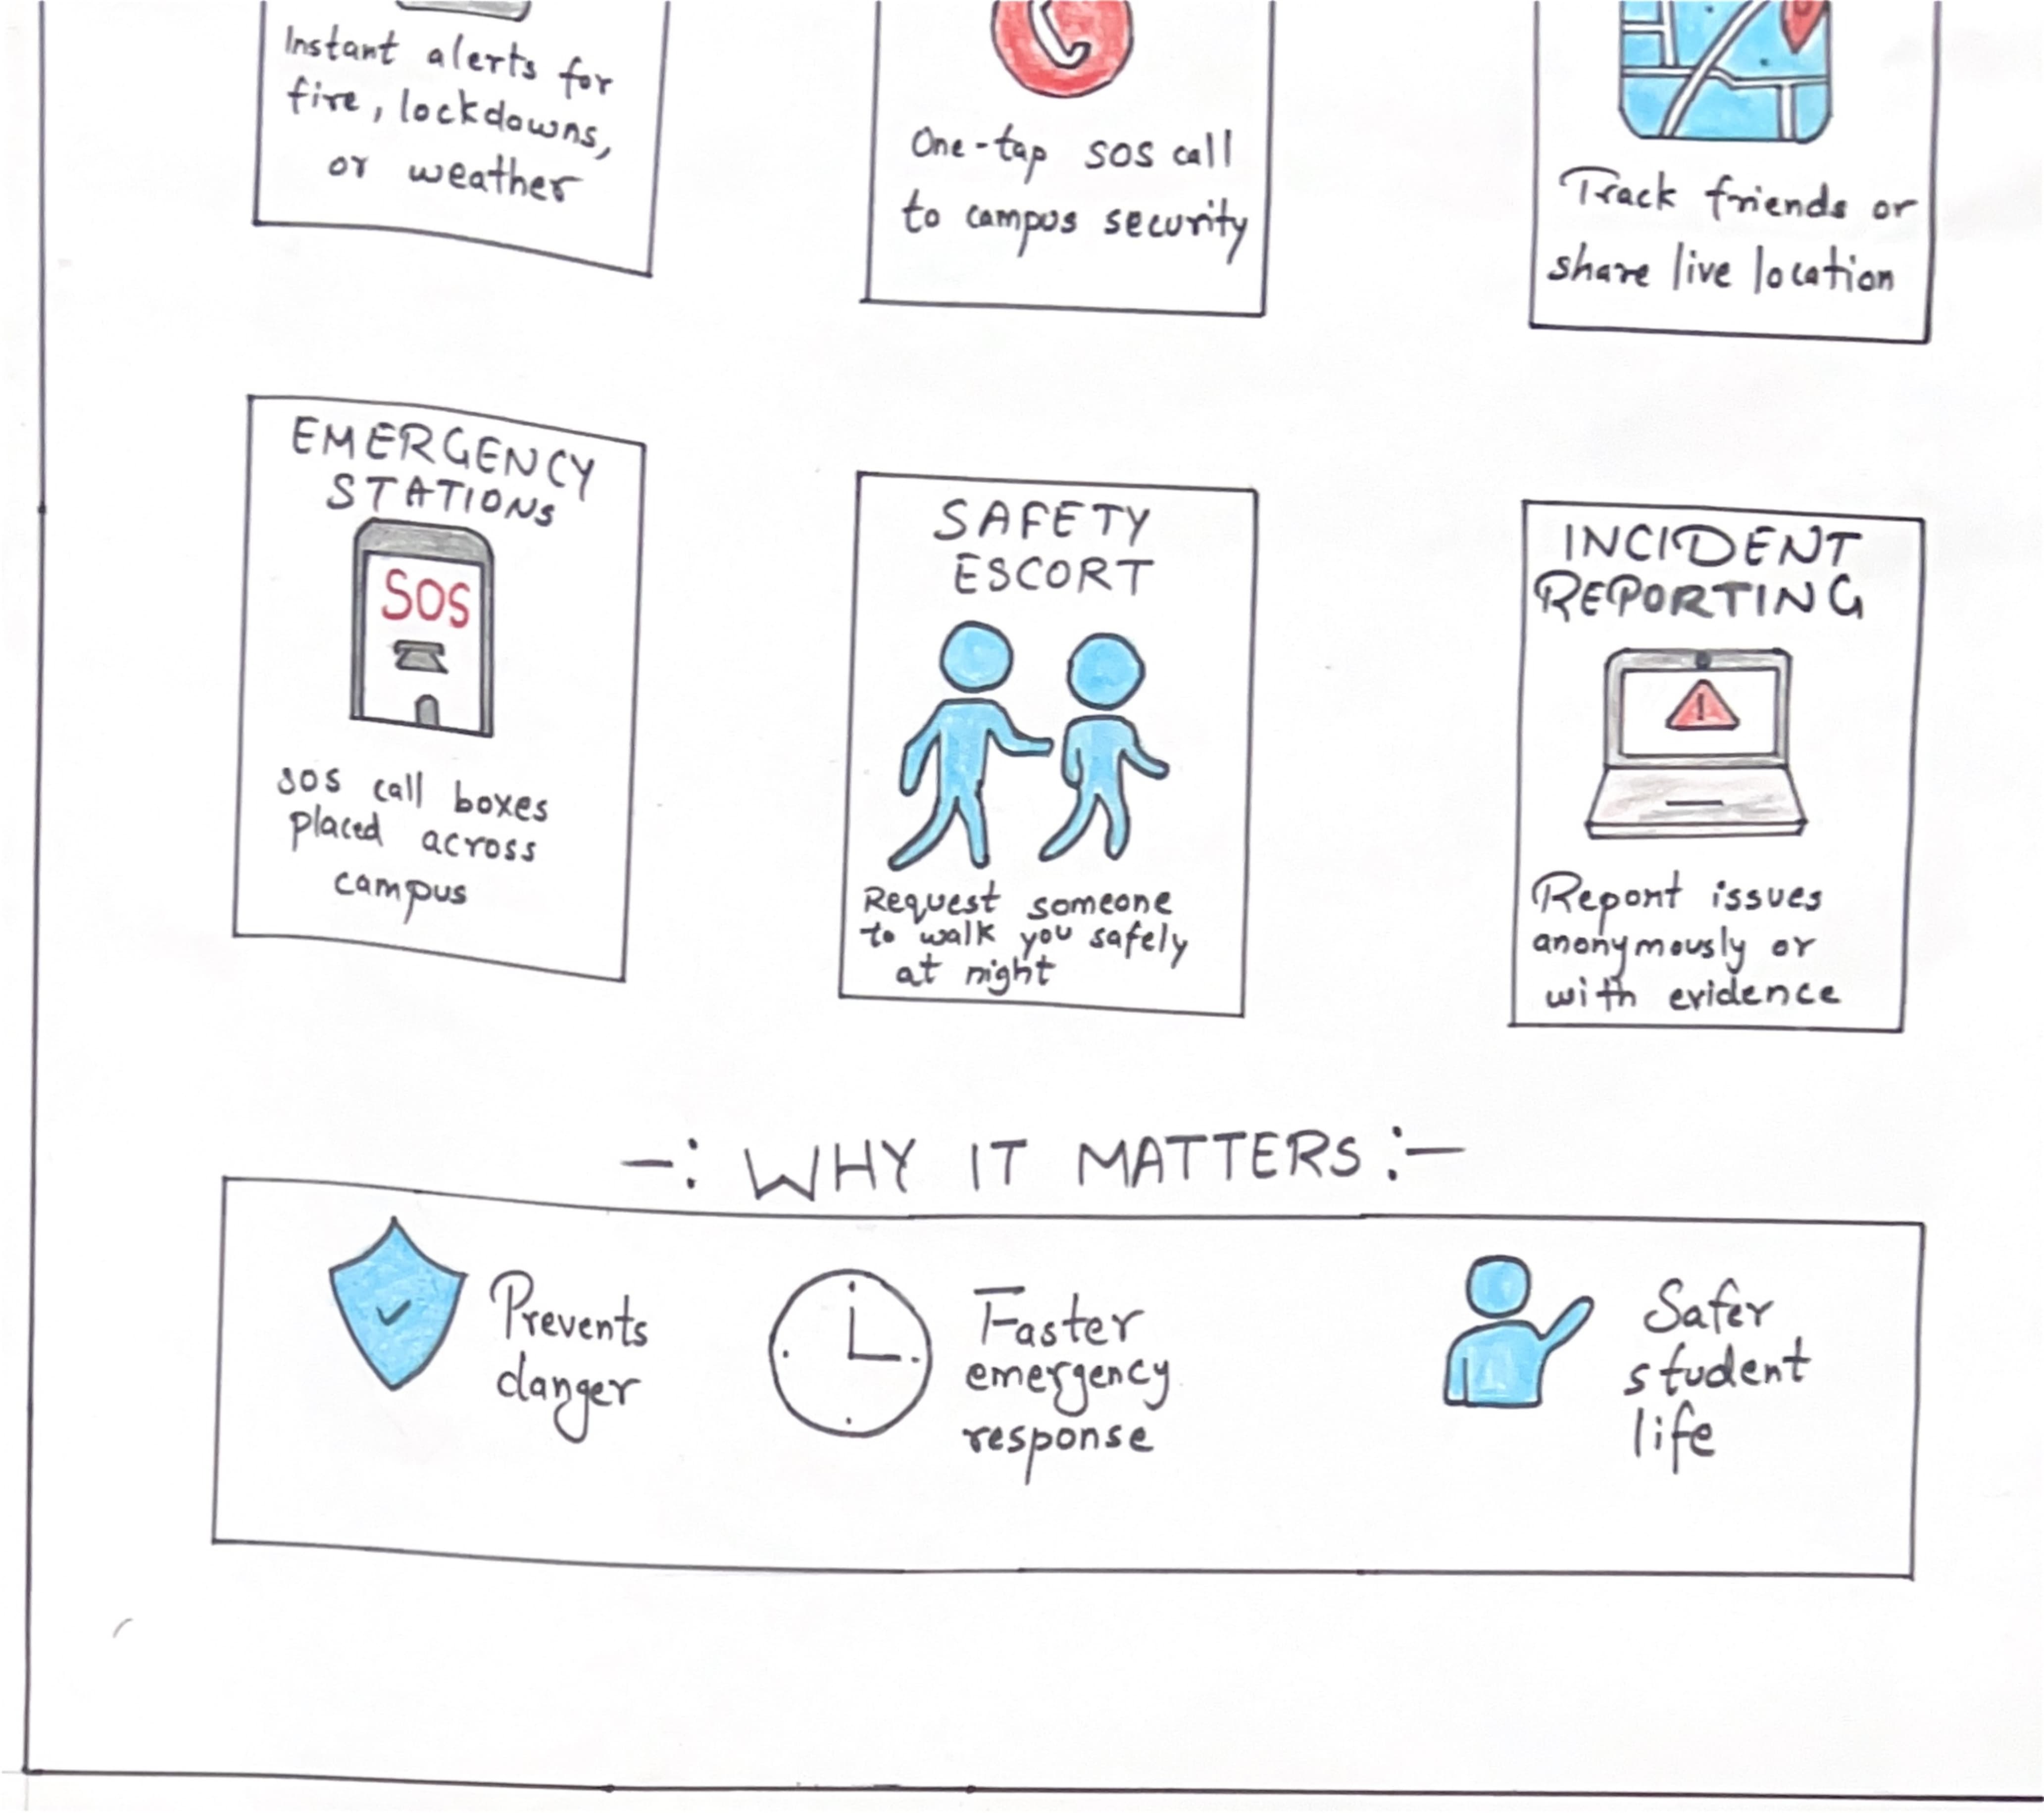 Instant alerts for
fire, lockdowns,
or weather
One-tap SOS call
to campus security
Track friends or
share live location
EMERGENCY
STATIONS
SOS
SOS call boxes
placed across
campus
SAFETY
ESCORT
Request someone
to walk you safely
at night
INCIDENT
REPORTING
!
Report issues
anonymously or
with evidence
-: WHY IT MATTERS :-
Prevents
danger
Faster
emergency
response
Safer
student
life